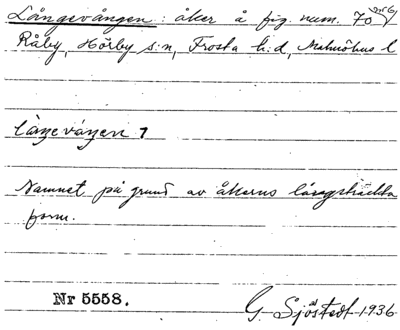 Långevången: åker å fig. num. 70 nr 6
Råby, Hörby s:n, Frosta h:d, Malmöhus l
långevången 1
Namnet på grund av åkerns långsträckta
form.
Nr 5558.
G. Sjöstedt 1936